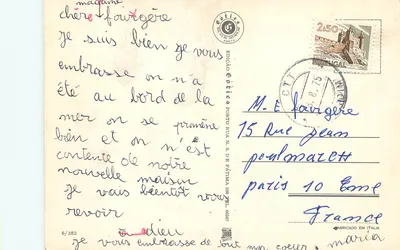 madame
chère fougère
je suis bien je vous
embrasse on n'a
été au bord de la
mer on se promène
bien et on n'est
contente de notre
nouvelle maison
je vais bientôt vous
revoir
adieu
je vous embrasse de tout mon coeur maria
6/282
EDIÇÃO Gótica PORTO
2$50
PORTUGAL
CTT
M. E fougère
15 Rue Jean
poulmarch
paris 10 Eme
France
FABRICADO EM ITALIA